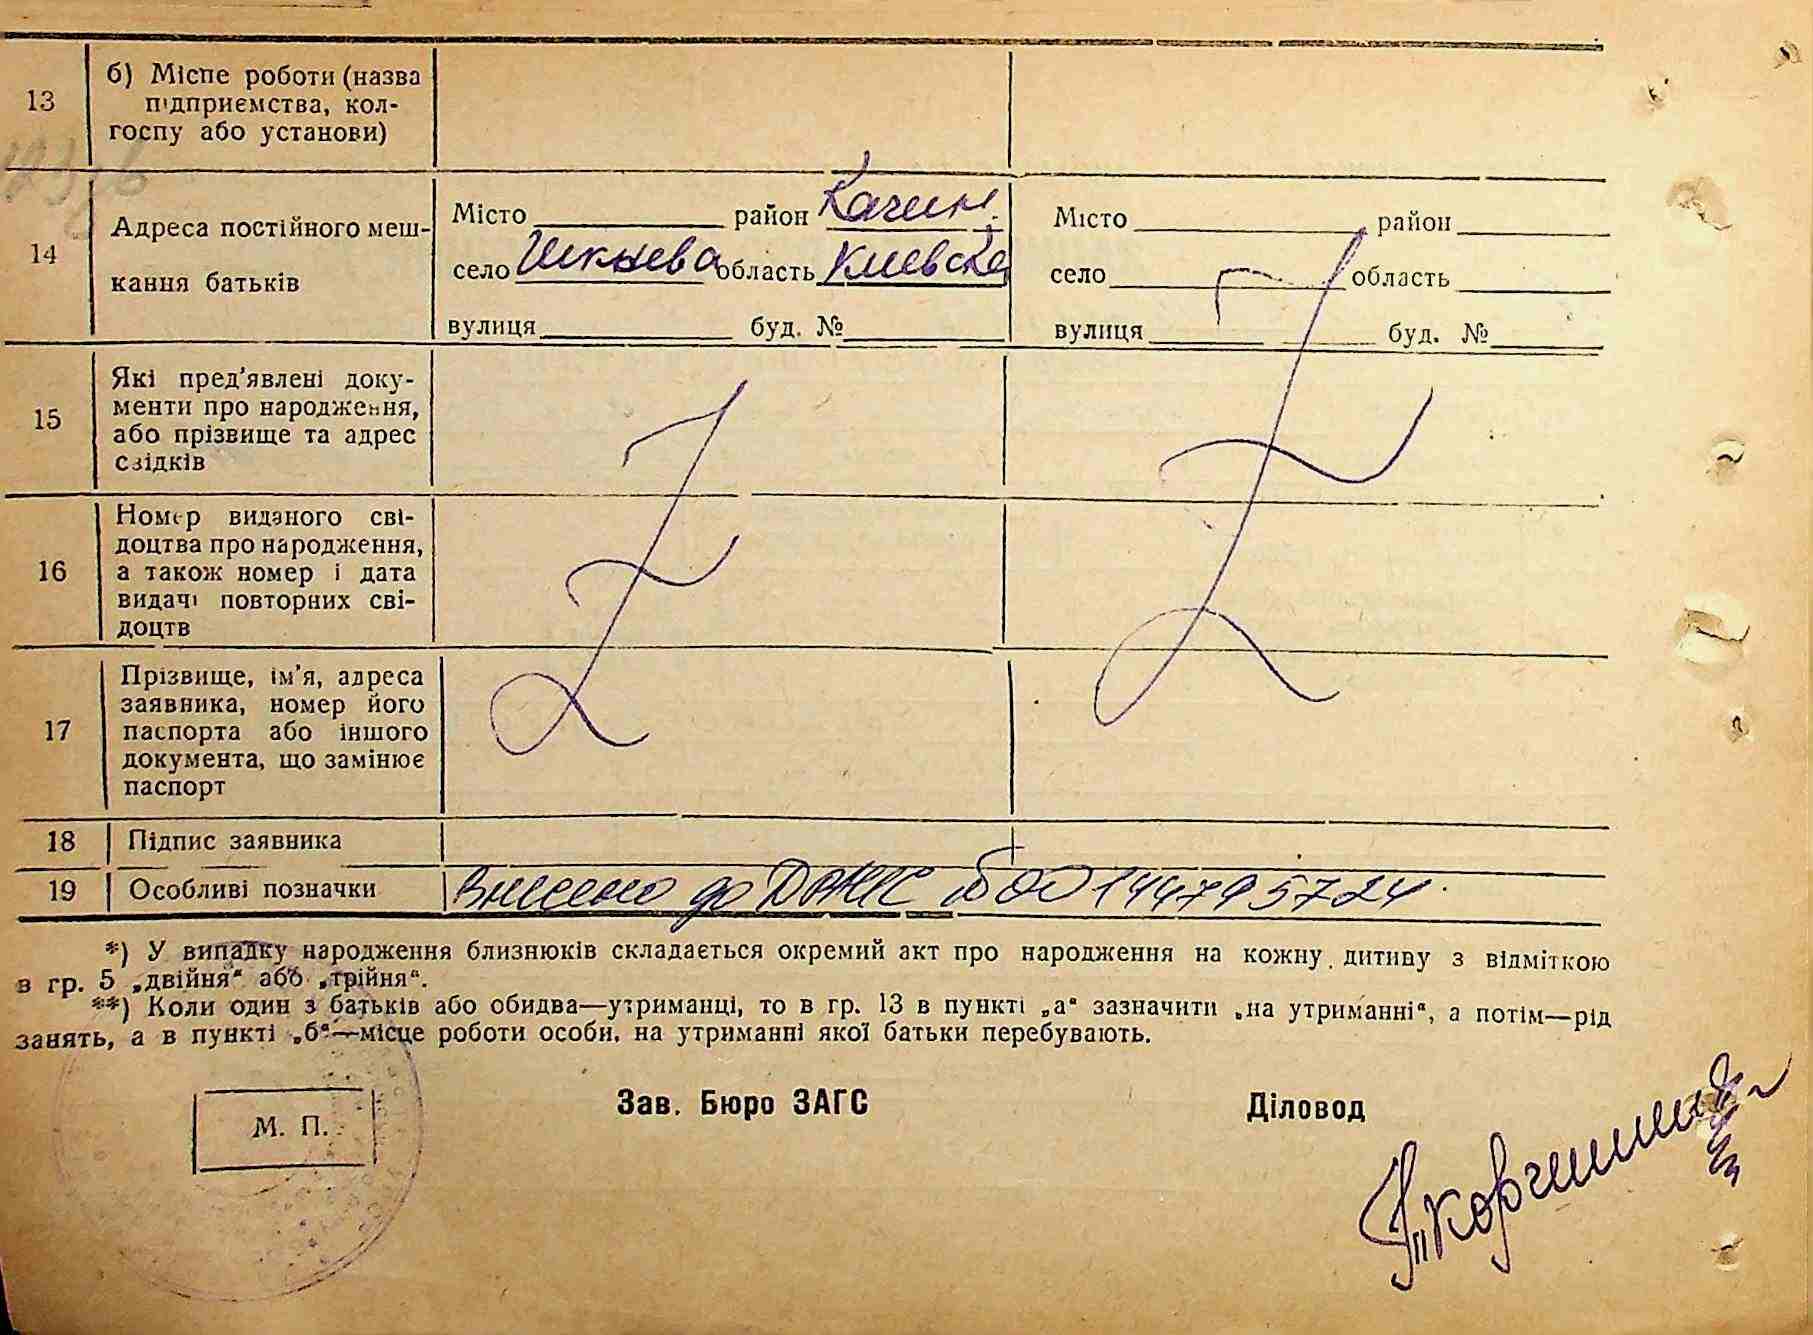 13
б) Місце роботи (назва
підприємства, кол-
госпу або установи)
14
Адреса постійного меш-
кання батьків
Місто район
село область Киевска
вулиця буд. №
Місто район
село область
вулиця буд. №
15
Які пред'явлені доку-
менти про народження,
або прізвище та адрес
свідків
16
Номер виданого сві-
доцтва про народження,
а також номер і дата
видачі повторних сві-
доцтв
17
Прізвище, ім'я, адреса
заявника, номер його
паспорта або іншого
документа, що замінює
паспорт
18 Підпис заявника
19 Особливі позначки Внесено до ДРАЦС 00144795724
*) У випадку народження близнюків складається окремий акт про народження на кожну дитину з відміткою
в гр. 5 „двійня“ або „трійня“.
**) Коли один з батьків або обидва—утриманці, то в гр. 13 в пункті „а“ зазначити „на утриманні“, а потім—рід
занять, а в пункті „б“—місце роботи особи, на утриманні якої батьки перебувають.
М. П.
Зав. Бюро ЗАГС
Діловод